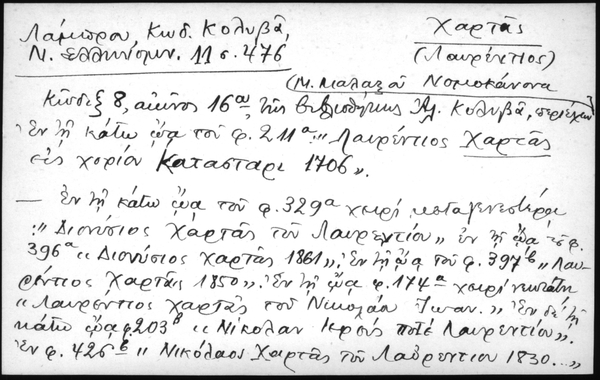 Λάμπρου, Κωδ. Κολυβᾶ,
Ν. Ἑλληνομν. 11 σ. 476
Χαρτᾶς
(Λαυρέντιος)
(Μ. Μαλαξοῦ Νομοκάνονα
Κῶδιξ 8, αἰῶνος 16ου, τῆς βιβλιοθήκης Ἀλ. Κολυβᾶ, περιέχων
Ἐν τῇ κάτω ὤᾳ τοῦ φ. 211α: "Λαυρέντιος Χαρτᾶς
εἰς χορίον Καταστάρι 1706".
— Ἐν τῇ κάτω ὤᾳ τοῦ φ. 329α χειρὶ μεταγενεστέρᾳ
: "Διονύσιος Χαρτᾶς τοῦ Λαυρεντίου" ἐν τῇ ὤᾳ τοῦ φ.
396α "Διονύσιος Χαρτᾶς 1861", Ἐν τῇ ὤᾳ τοῦ φ. 397β "Λαυ-
ρέντιος Χαρτᾶς 1850". Ἐν τῇ ὤᾳ φ. 174α χειρὶ νεωτάτῃ
"Λαυρέντιος χαρτᾶς τοῦ Νικολάο Ἰωαν." Ἐν δὲ τῇ
κάτω ὤᾳ φ. 203β "Νικολαν Ιερεύς ποτέ Λαυρεντίου".
Ἐν φ. 426β "Νικόλαος Χαρτᾶς τοῦ Λαῦρεντιου 1830..."